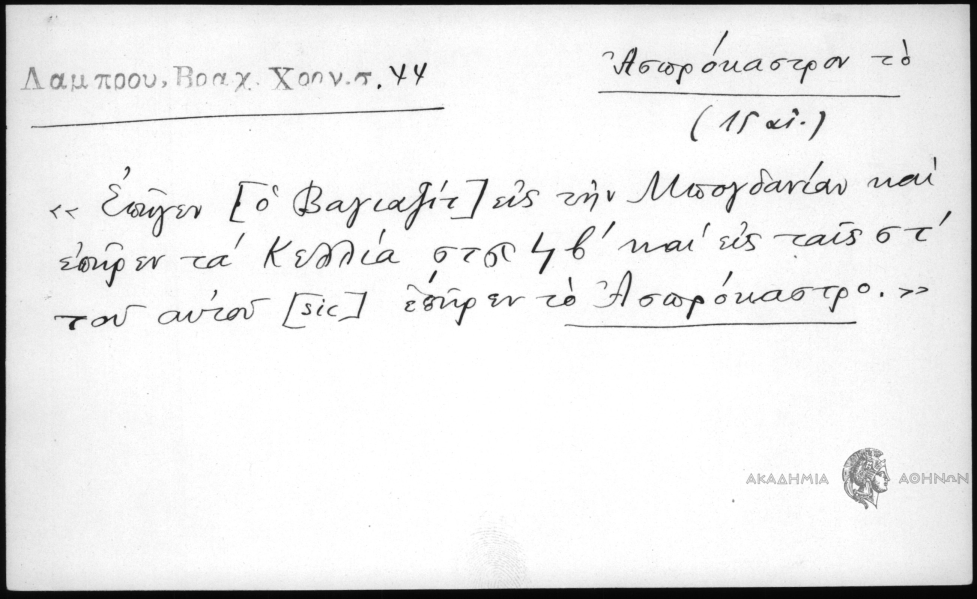 Λαμπρου, Βραχ. Χρον. σ. 44
Ἀσπρόκαστρον τὸ
(15 αἰ.)
« Ἐπῆγεν [ὁ Βαγιαζίτ] εἰς τὴν Μπογδανίαν καὶ
ἐπῆρεν τὰ Κελλία στὰς ϟ β´ καὶ εἰς ταῖς στ´
τοῦ αὐτοῦ [sic] ἐπῆρεν τὸ Ἀσπρόκαστρο. »
ΑΚΑΔΗΜΙΑ ΑΘΗΝΩΝ